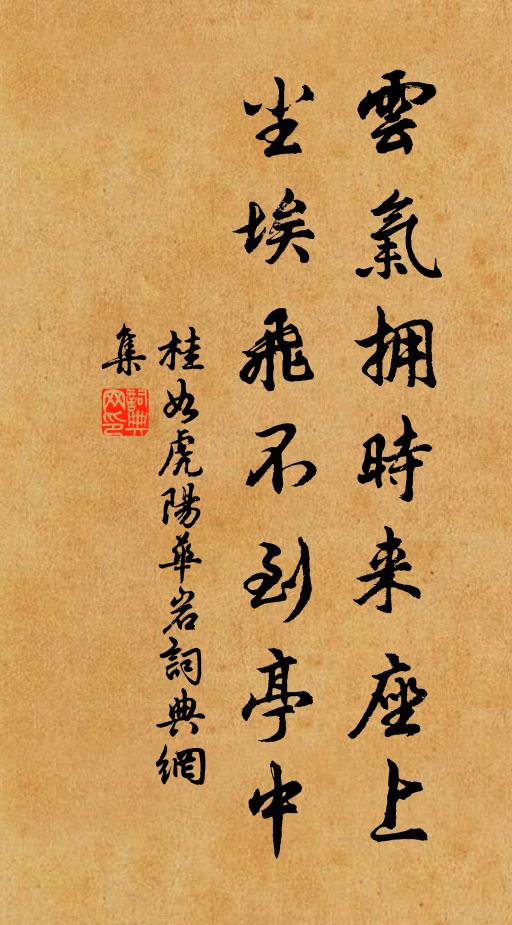 雲氣拥時来座上
尘埃飛不到亭中
桂如虎陽華岩詞典網
集
詞典
网印